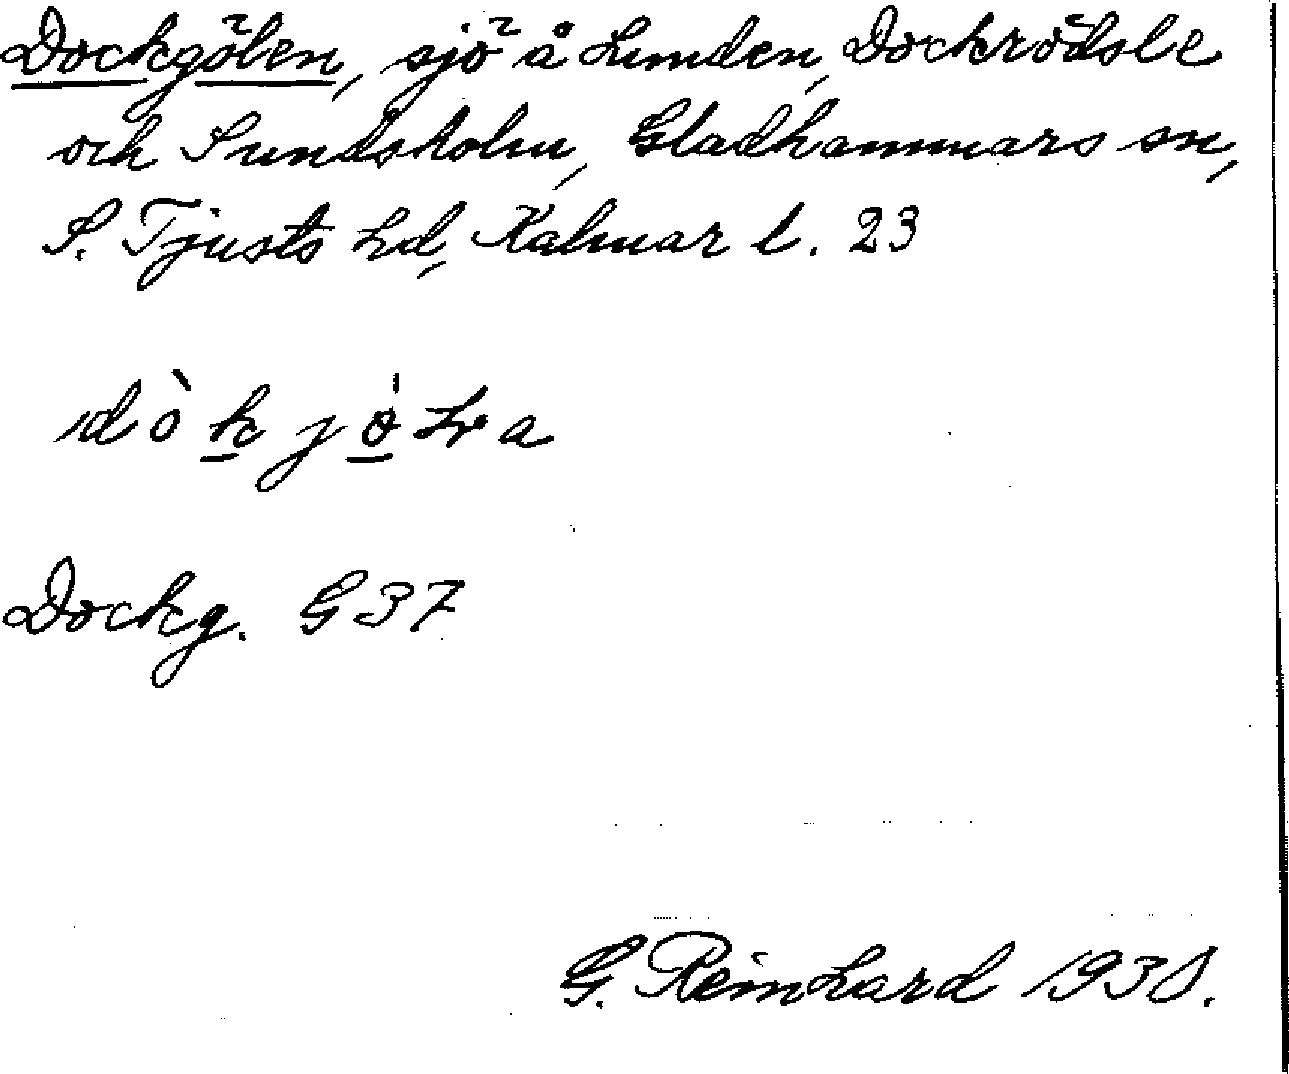 Dockgölen, sjö å Lunden, Dockrödsle
och Sundsholm, Gladhammars sn,
S. Tjusts hd, Kalmar l. 23
Dockg. G 37
G. Reinhard 1930.